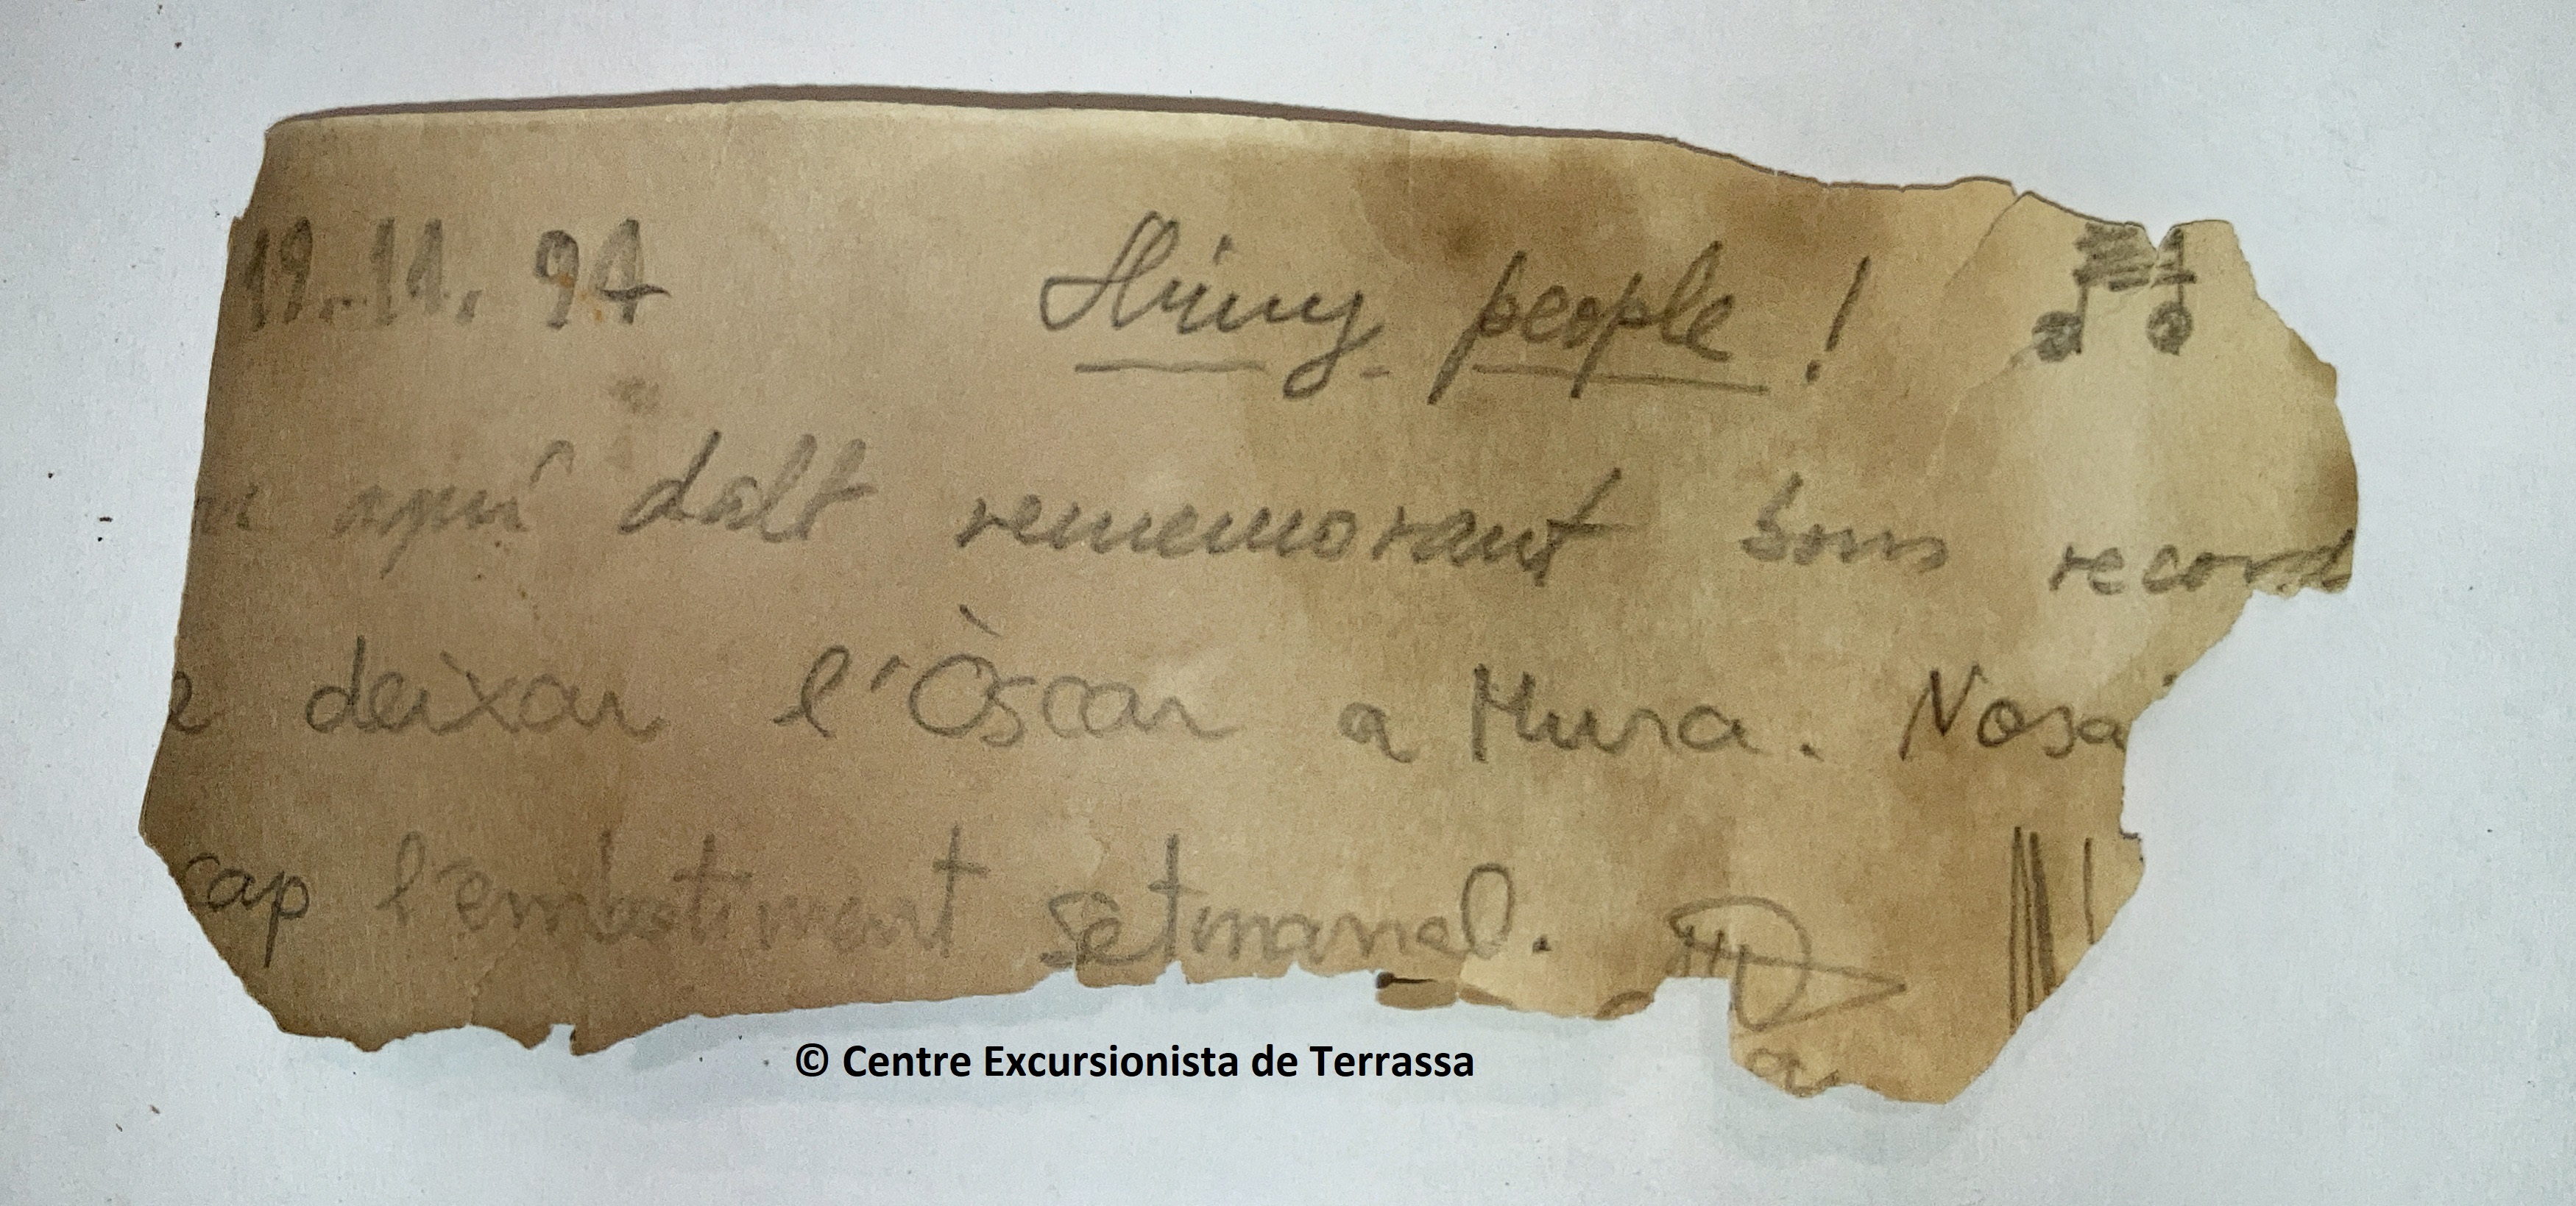 19.11.94 Shiny people!
aquí dalt rememorant bons record
e deixar l'Òscar a Mura. Nosa
cap l'embotiment setmanal.
a
© Centre Excursionista de Terrassa